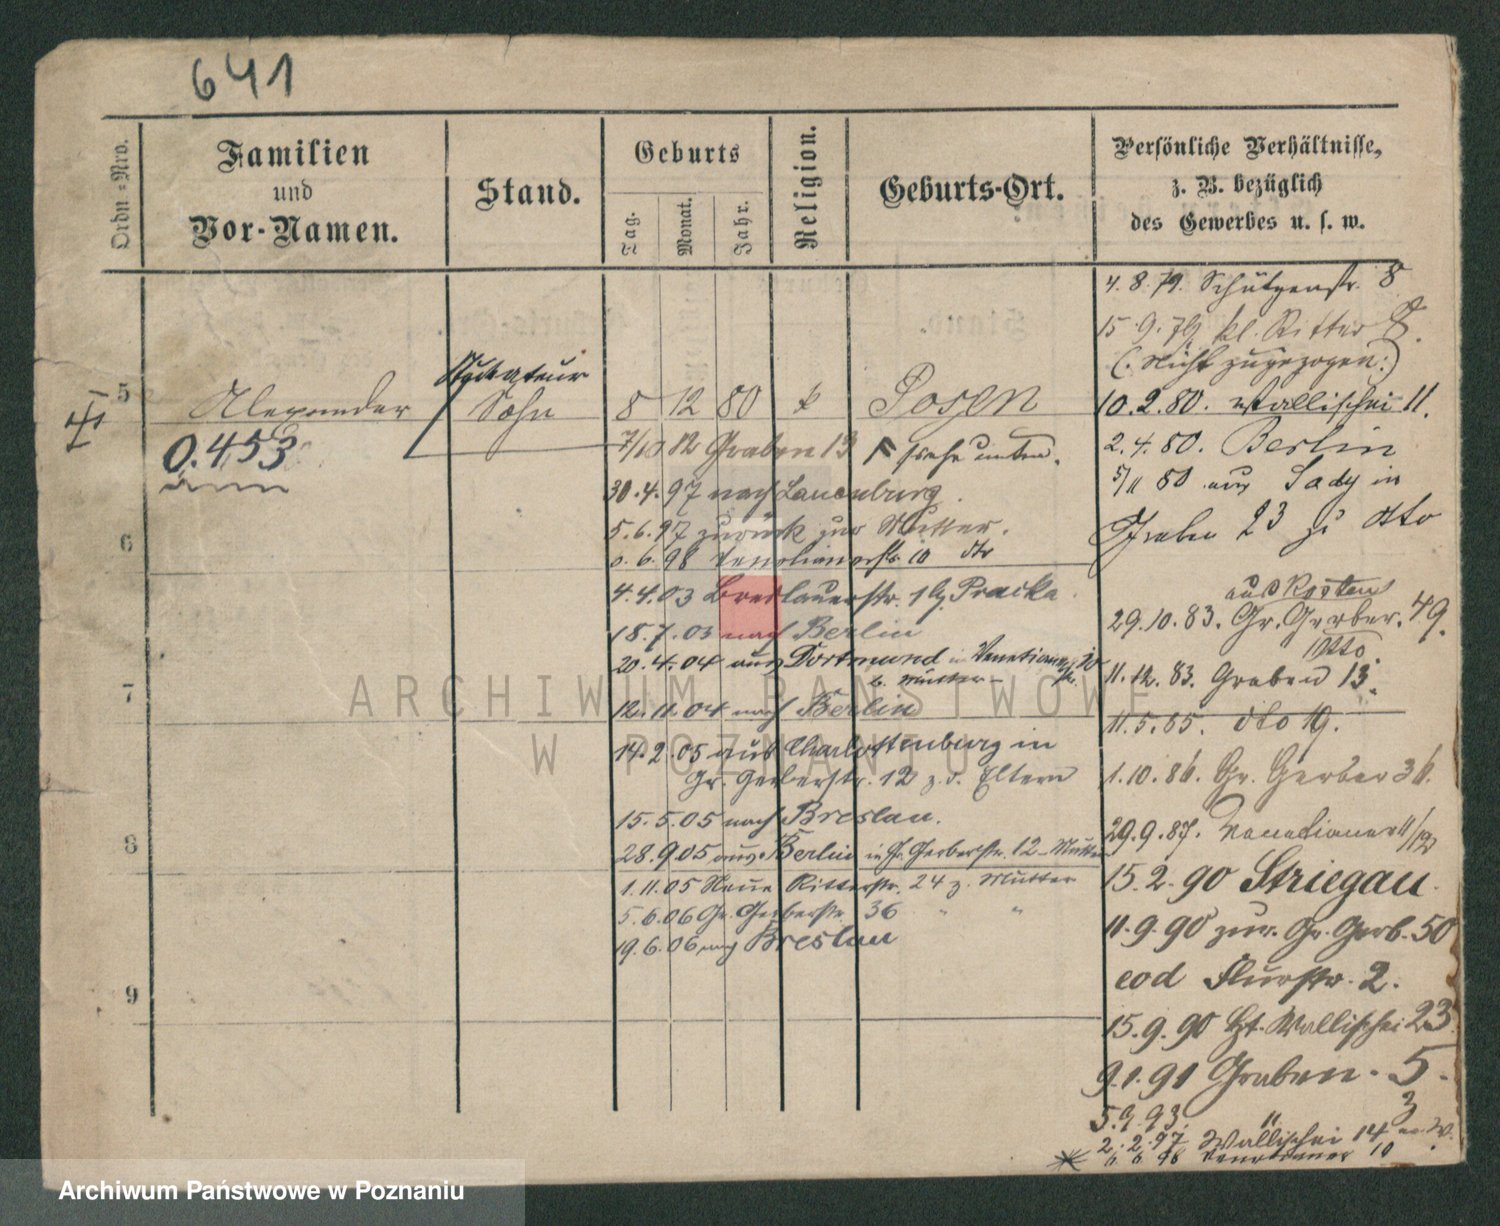 641
Ordn-Nro.
Familien
und
Vor-Namen.
Stand.
Geburts
Tag.
Monat.
Jahr.
Religion.
Geburts-Ort.
Persönliche Verhältnisse,
z. B. bezüglich
des Gewerbes u. s. w.
4.8.79. Schützenstr. 8
15.9.79 kl. Ritter 8.
(: Nicht zugezogen:)
5
Alexander
Stuckateur
Sohn
8 12 80 k Posen
10.2.80. Wallischei 11.
0.453
7/10 12 Graben 13 siehe unten.
2.4.80. Berlin
30.4.97 nach Lauenburg.
5/11 80 aus Sady in
5.6.97 zurück zur Mutter.
Graben 23 zu Otto
6
6.6.98 Venetianerstr. 10 dto
4.4.03 Breslauerstr. 19 Pracka
aus Kosten
29.10.83. Gr. Gerber. 49.
Otto.
18.7.03 nach Berlin
20.4.04 aus Dortmund in Venetianerstr. 10
b. Mutter
11.12.83. Graben 13.
7
12.11.04 nach Berlin
11.5.85. dto 19.
14.2.05 aus Charlottenburg in
Gr. Gerberstr. 12 z. d. Eltern
1.10.86. Gr. Gerber 36.
15.5.05 nach Breslau.
29.9.87. Venetianer 11/12
8
28.9.05 aus Berlin in Gr. Gerberstr. 12 Mutter
1.11.05 Neue Ritterstr. 24 z. Mutter
15.2.90 Striegau.
5.6.06 Gr. Gerberstr. 36 " "
11.9.90 zur. Gr. Gerb. 50
19.6.06 nach Breslau
eod Flurstr. 2.
9
15.9.90 Ht. Wallischei 23
9.1.91 Graben 5.
5.9.93. " 3
2.2.97 Wallischei 14
6.6.98 Venetianer 10
ARCHIWUM PAŃSTWOWE
W POZNANIU
Archiwum Państwowe w Poznaniu